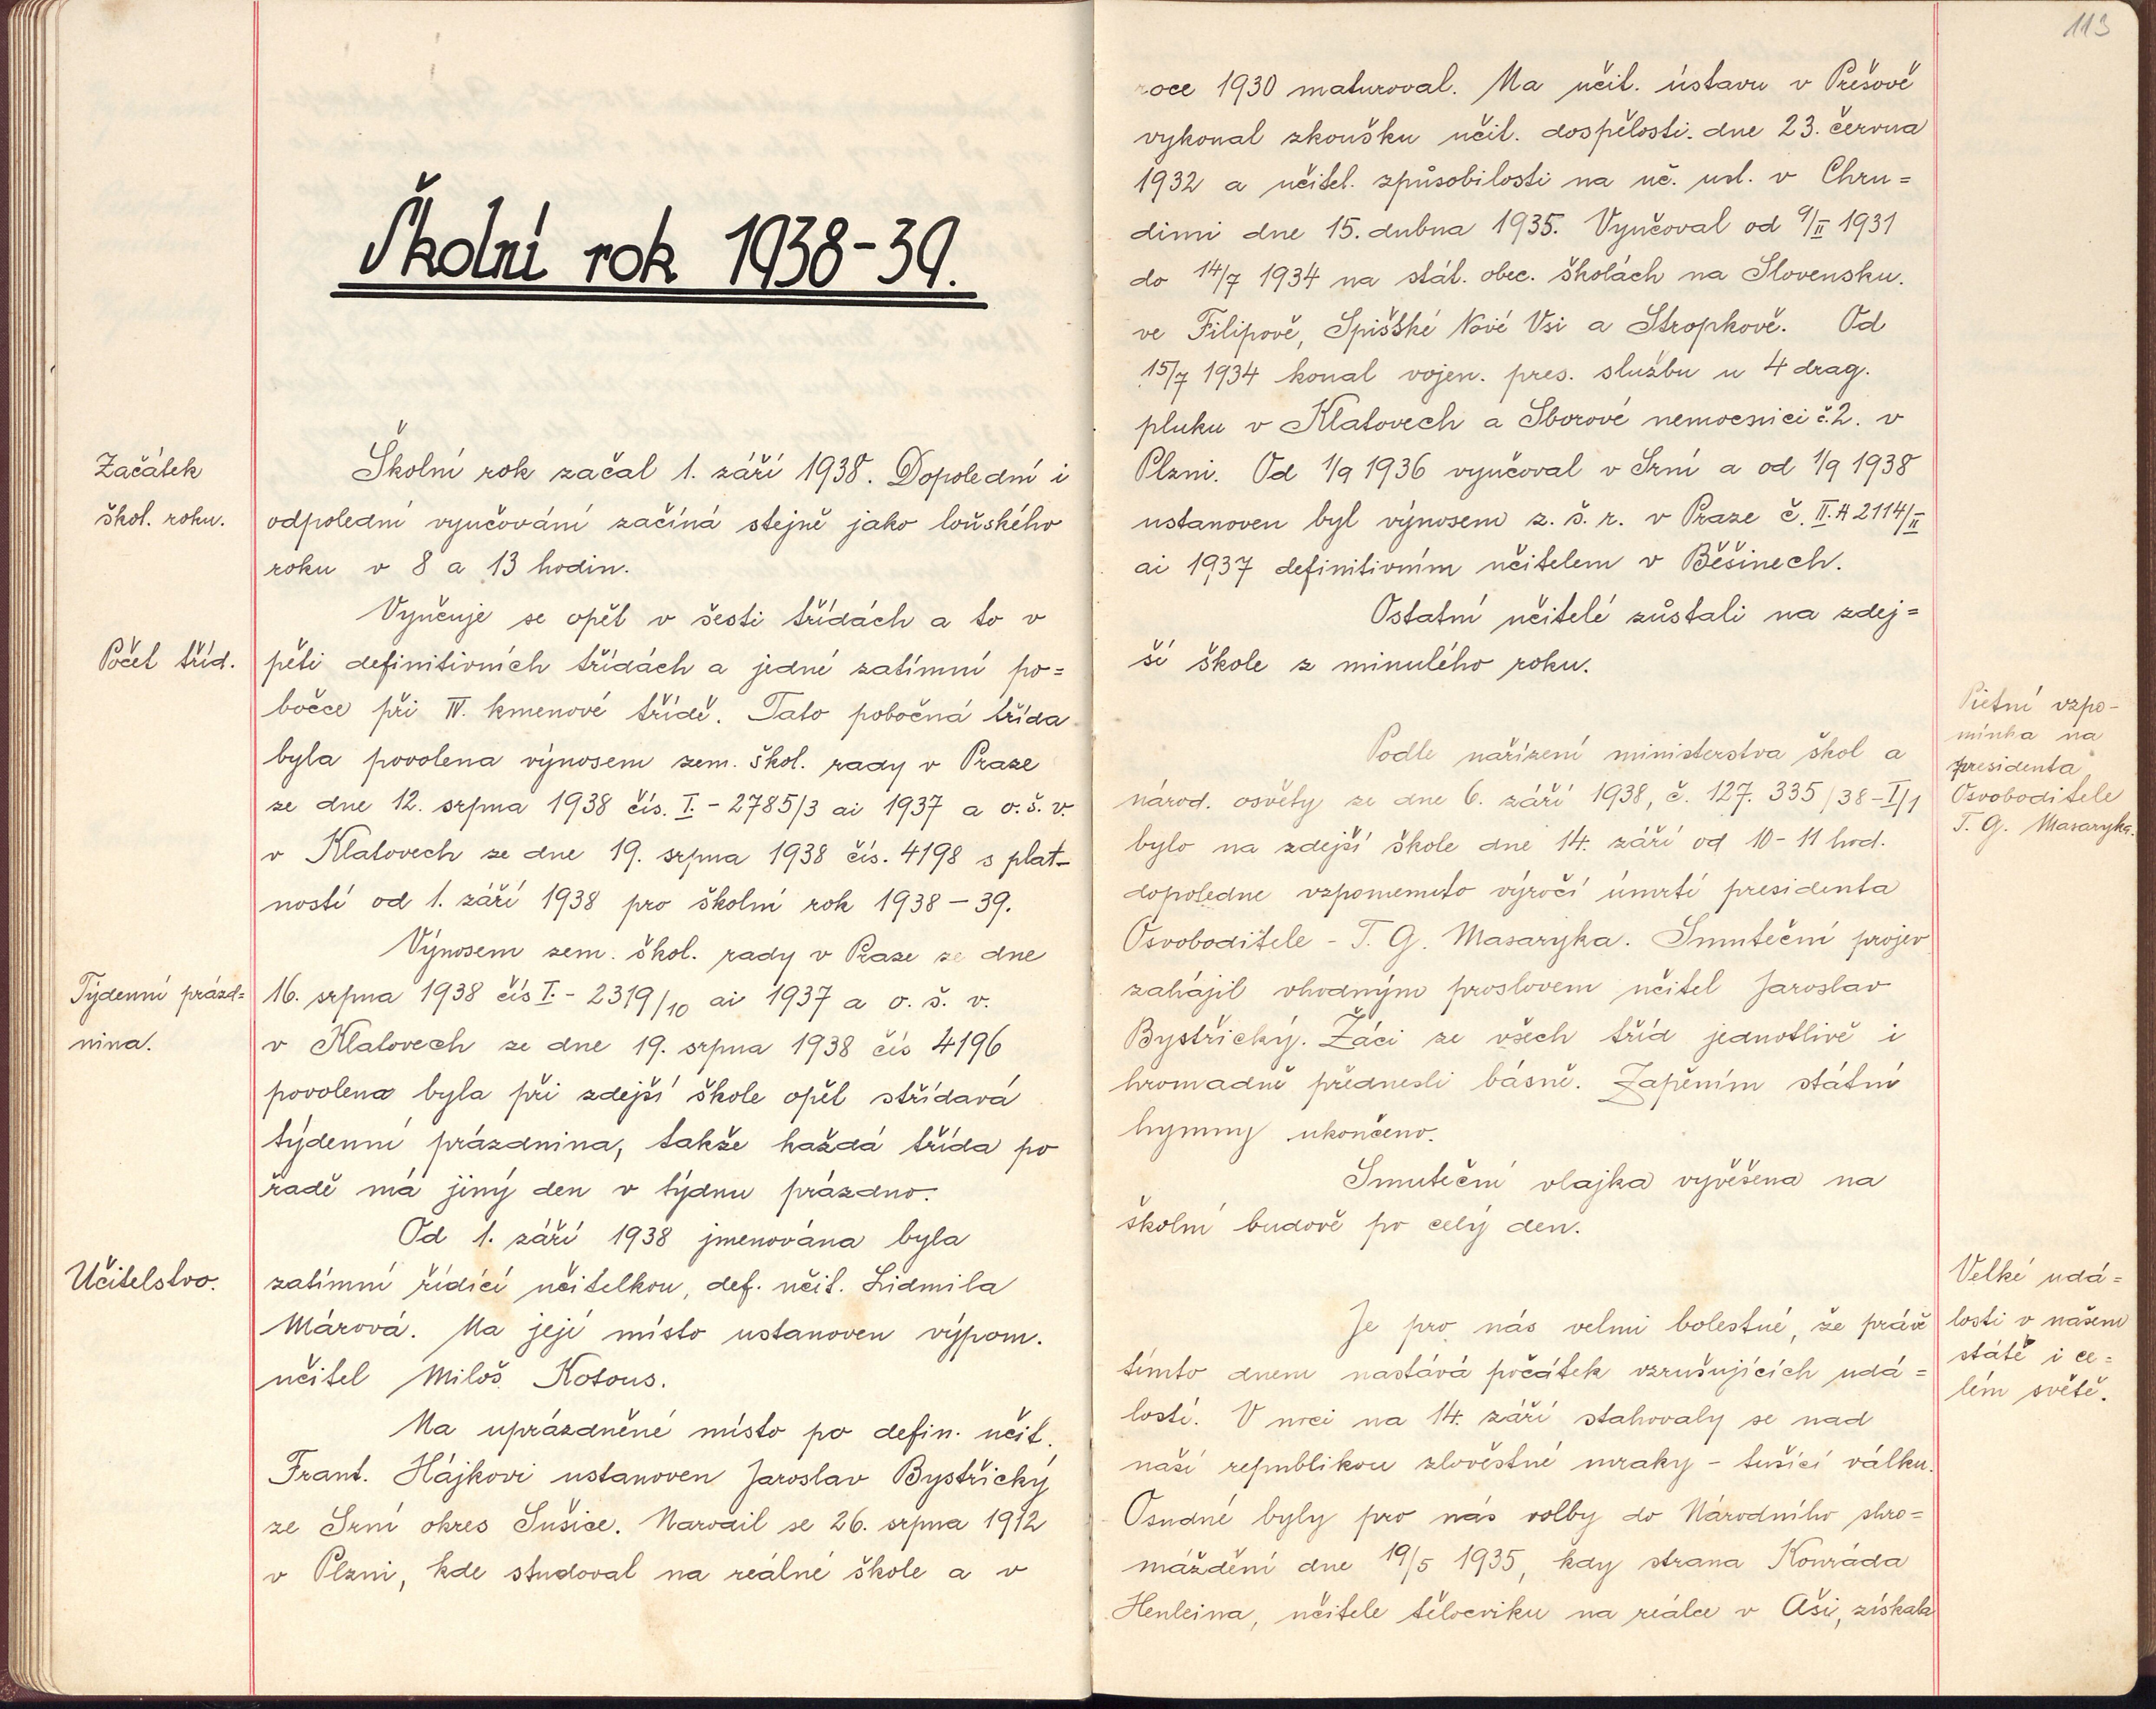 Školní rok 1938-39.
Začátek
škol. roku.
Školní rok začal 1. září 1938. Dopolední i
odpolední vyučování začíná stejně jako loňského
roku v 8 a 13 hodin.
Vyučuje se opět v šesti třídách a to v
Počet tříd.
pěti definitivních třídách a jedné zatímní po=
bočce při IV. kmenové třídě. Tato pobočná třída
byla povolena výnosem zem. škol. rady v Praze
ze dne 12. srpna 1938 čís. I. - 2785/3 ai 1937 a o. š. v.
v Klatovech ze dne 19. srpna 1938 čís. 4198 s plat-
ností od 1. září 1938 pro školní rok 1938 - 39.
Výnosem zem. škol. rady v Praze ze dne
Týdenní prázd=
nina.
16. srpna 1938 čís I. - 2319/10 ai 1937 a o. š. v.
v Klatovech ze dne 19. srpna 1938 čís 4196
povolena byla při zdejší škole opět střídavá
týdenní prázdnina, takže každá třída po
řadě má jiný den v týdnu prázdno.
Od 1. září 1938 jmenována byla
Učitelstvo.
zatímní řídící učitelkou, def. učit. Lidmila
Márová. Na její místo ustanoven výpom.
učitel Miloš Kotous.
Na uprázdněné místo po defin. učit.
Frant. Hájkovi ustanoven Jaroslav Bystřický
ze Srní okres Sušice. Narodil se 26. srpna 1912
v Plzni, kde studoval na reálné škole a v
113
roce 1930 maturoval. Na učit. ústavu v Prešově
vykonal zkoušku učit. dospělosti dne 23. června
1932 a učitel. způsobilosti na uč. úst. v Chru=
dimi dne 15. dubna 1935. Vyučoval od 9/II 1931
do 14/7 1934 na stát. obec. školách na Slovensku.
ve Filipově, Spišské Nové Vsi a Stropkově. Od
15/7 1934 konal vojen. pres. službu u 4 drag.
pluku v Klatovech a Sborové nemocnici č.2. v
Plzni. Od 1/9 1936 vyučoval v Srní a od 1/9 1938
ustanoven byl výnosem z. š. r. v Praze č. II. A 2114/II
ai 1937 definitivním učitelem v Běšinech.
Ostatní učitelé zůstali na zdej=
ší škole z minulého roku.
Pietní vzpo-
mínka na
presidenta
Osvoboditele
T. G. Masaryka.
Podle nařízení ministerstva škol a
národ. osvěty ze dne 6. září 1938, č. 127.335/38-I/1
bylo na zdejší škole dne 14. září od 10-11 hod.
dopoledne vzpomenuto výročí úmrtí presidenta
Osvoboditele - T. G. Masaryka. Smuteční projev
zahájil vhodným proslovem učitel Jaroslav
Bystřický. Žáci ze všech tříd jednotlivě i
hromadně přednesli básně. Zapěním státní
hymny ukončeno.
Smuteční vlajka vyvěšena na
školní budově po celý den.
Velké udá=
losti v našem
státě i ce=
lém světě.
Je pro nás velmi bolestné, že právě
tímto dnem nastává počátek vzrušujících udá=
lostí. V noci na 14. září stahovaly se nad
naší republikou zlověstné mraky - tušící válku.
Osudné byly pro nás volby do Národního shro=
máždění dne 19/5 1935, kdy strana Konráda
Henleina, učitele tělocviku na reálce v Aši, získala